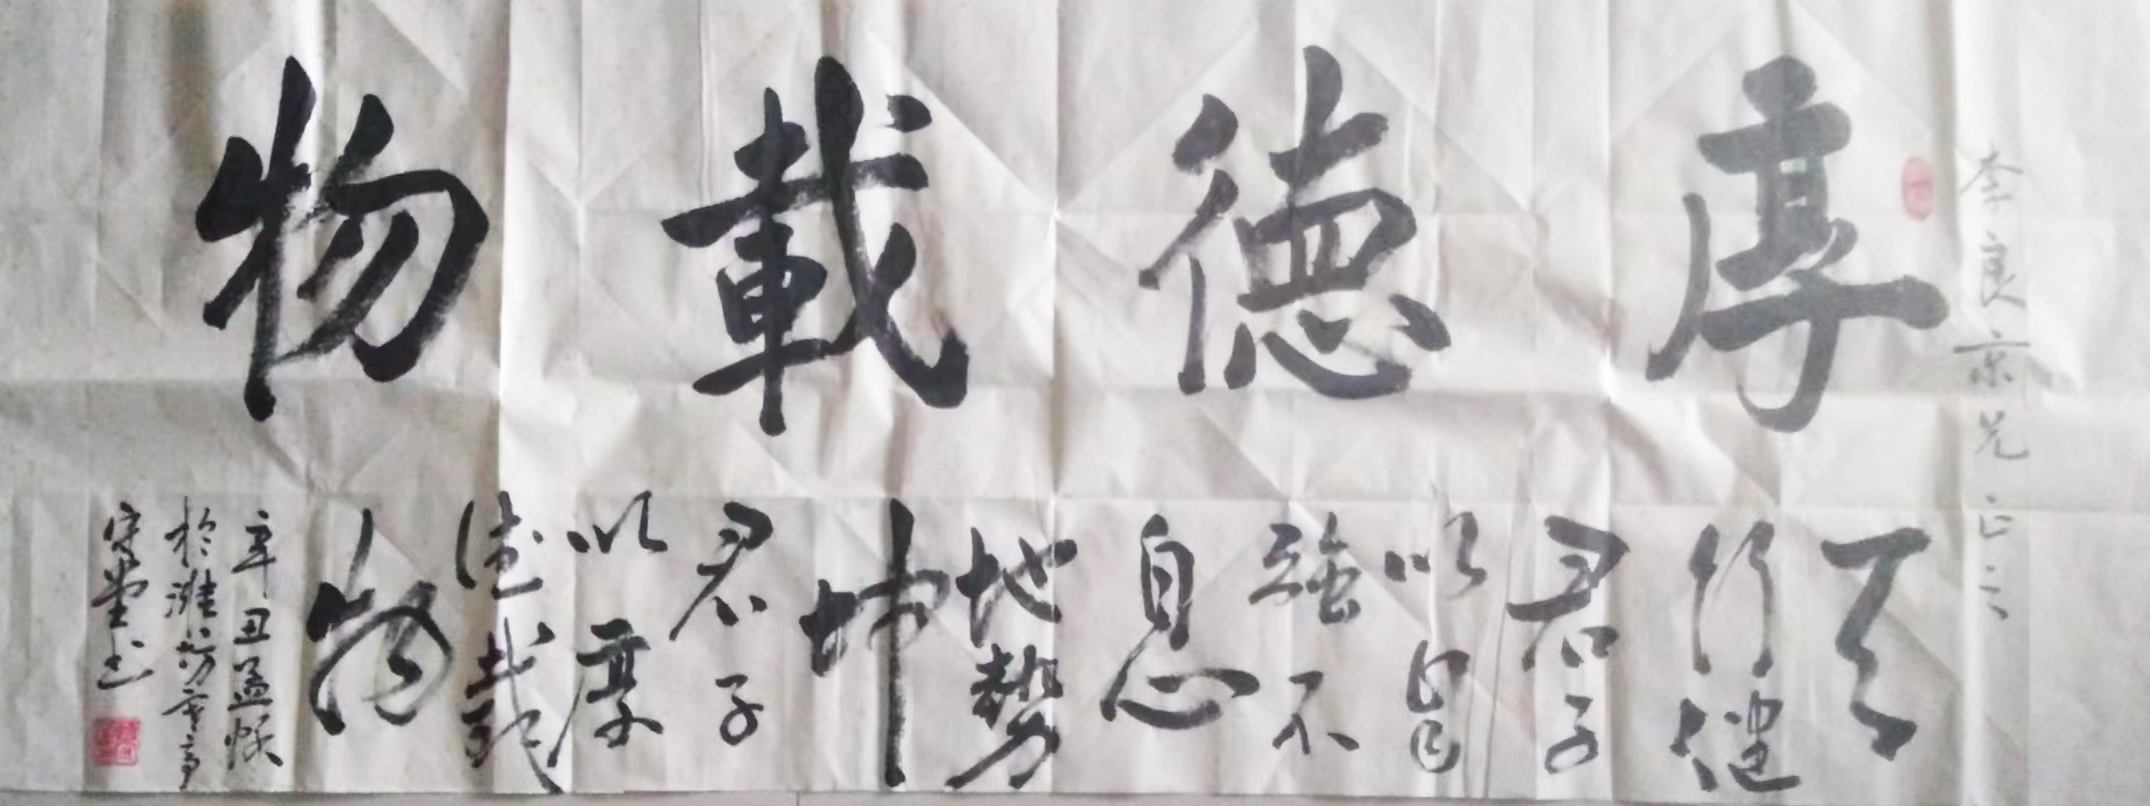 李良京兄正之
厚德載物
天
行健
君子
以自
强不
息
地勢
坤
君子
以厚
德載
物
辛丑孟秋
於潍坊寒亭
书